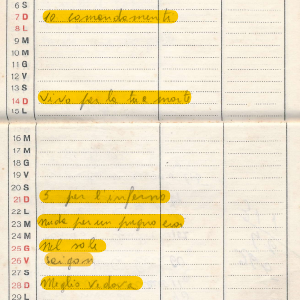 6 S
7 D 10 comandamenti
8 L
9 M
10 M
11 G
12 V
13 S
14 D Vivo per la tua morte
15 L
16 M
17 M
18 G
19 V
20 S
21 D 5 per l'inferno
22 L
23 M nude per un pugno eroi
24 M
25 G nel sole
26 V Saigon
27 S
28 D Meglio vedova
29 L